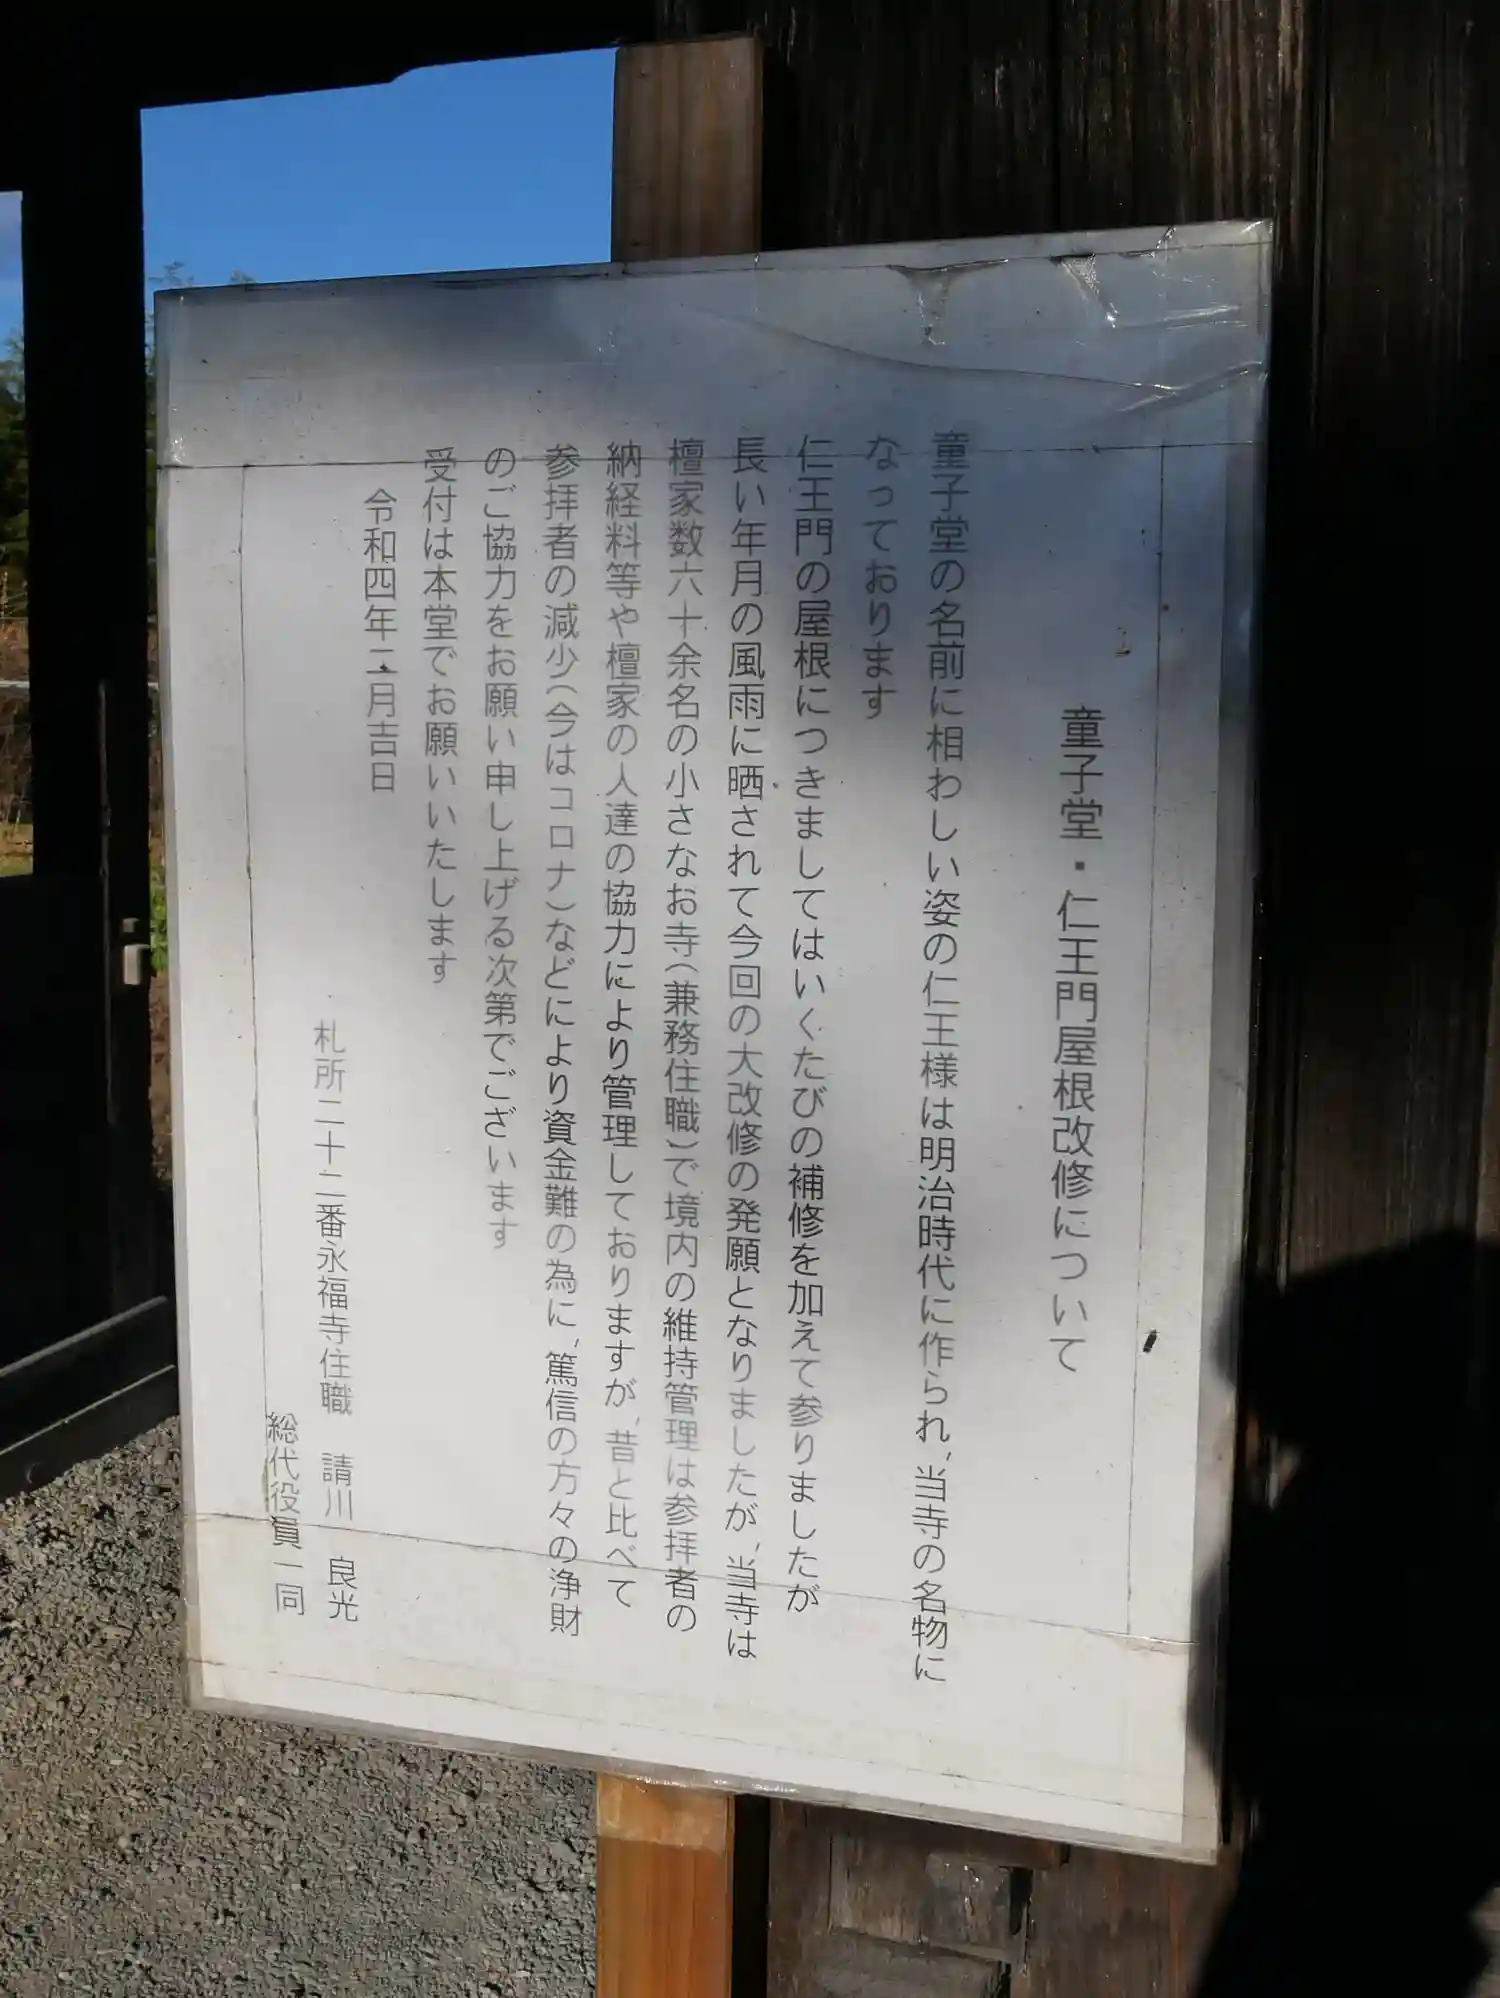 童子堂・仁王門屋根改修について
童子堂の名前に相わしい姿の仁王様は明治時代に作られ、当寺の名物に
なっております
仁王門の屋根につきましてはいくたびの補修を加えて参りましたが
長い年月の風雨に晒されて今回の大改修の発願となりましたが、当寺は
檀家数六十余名の小さなお寺（兼務住職）で境内の維持管理は参拝者の
納経料等や檀家の人達の協力により管理しておりますが、昔と比べて
参拝者の減少（今はコロナ）などにより資金難の為に、篤信の方々の浄財
のご協力をお願い申し上げる次第でございます
受付は本堂でお願いいたします
令和四年二月吉日
札所二十二番永福寺住職　請川　良光
総代役員一同